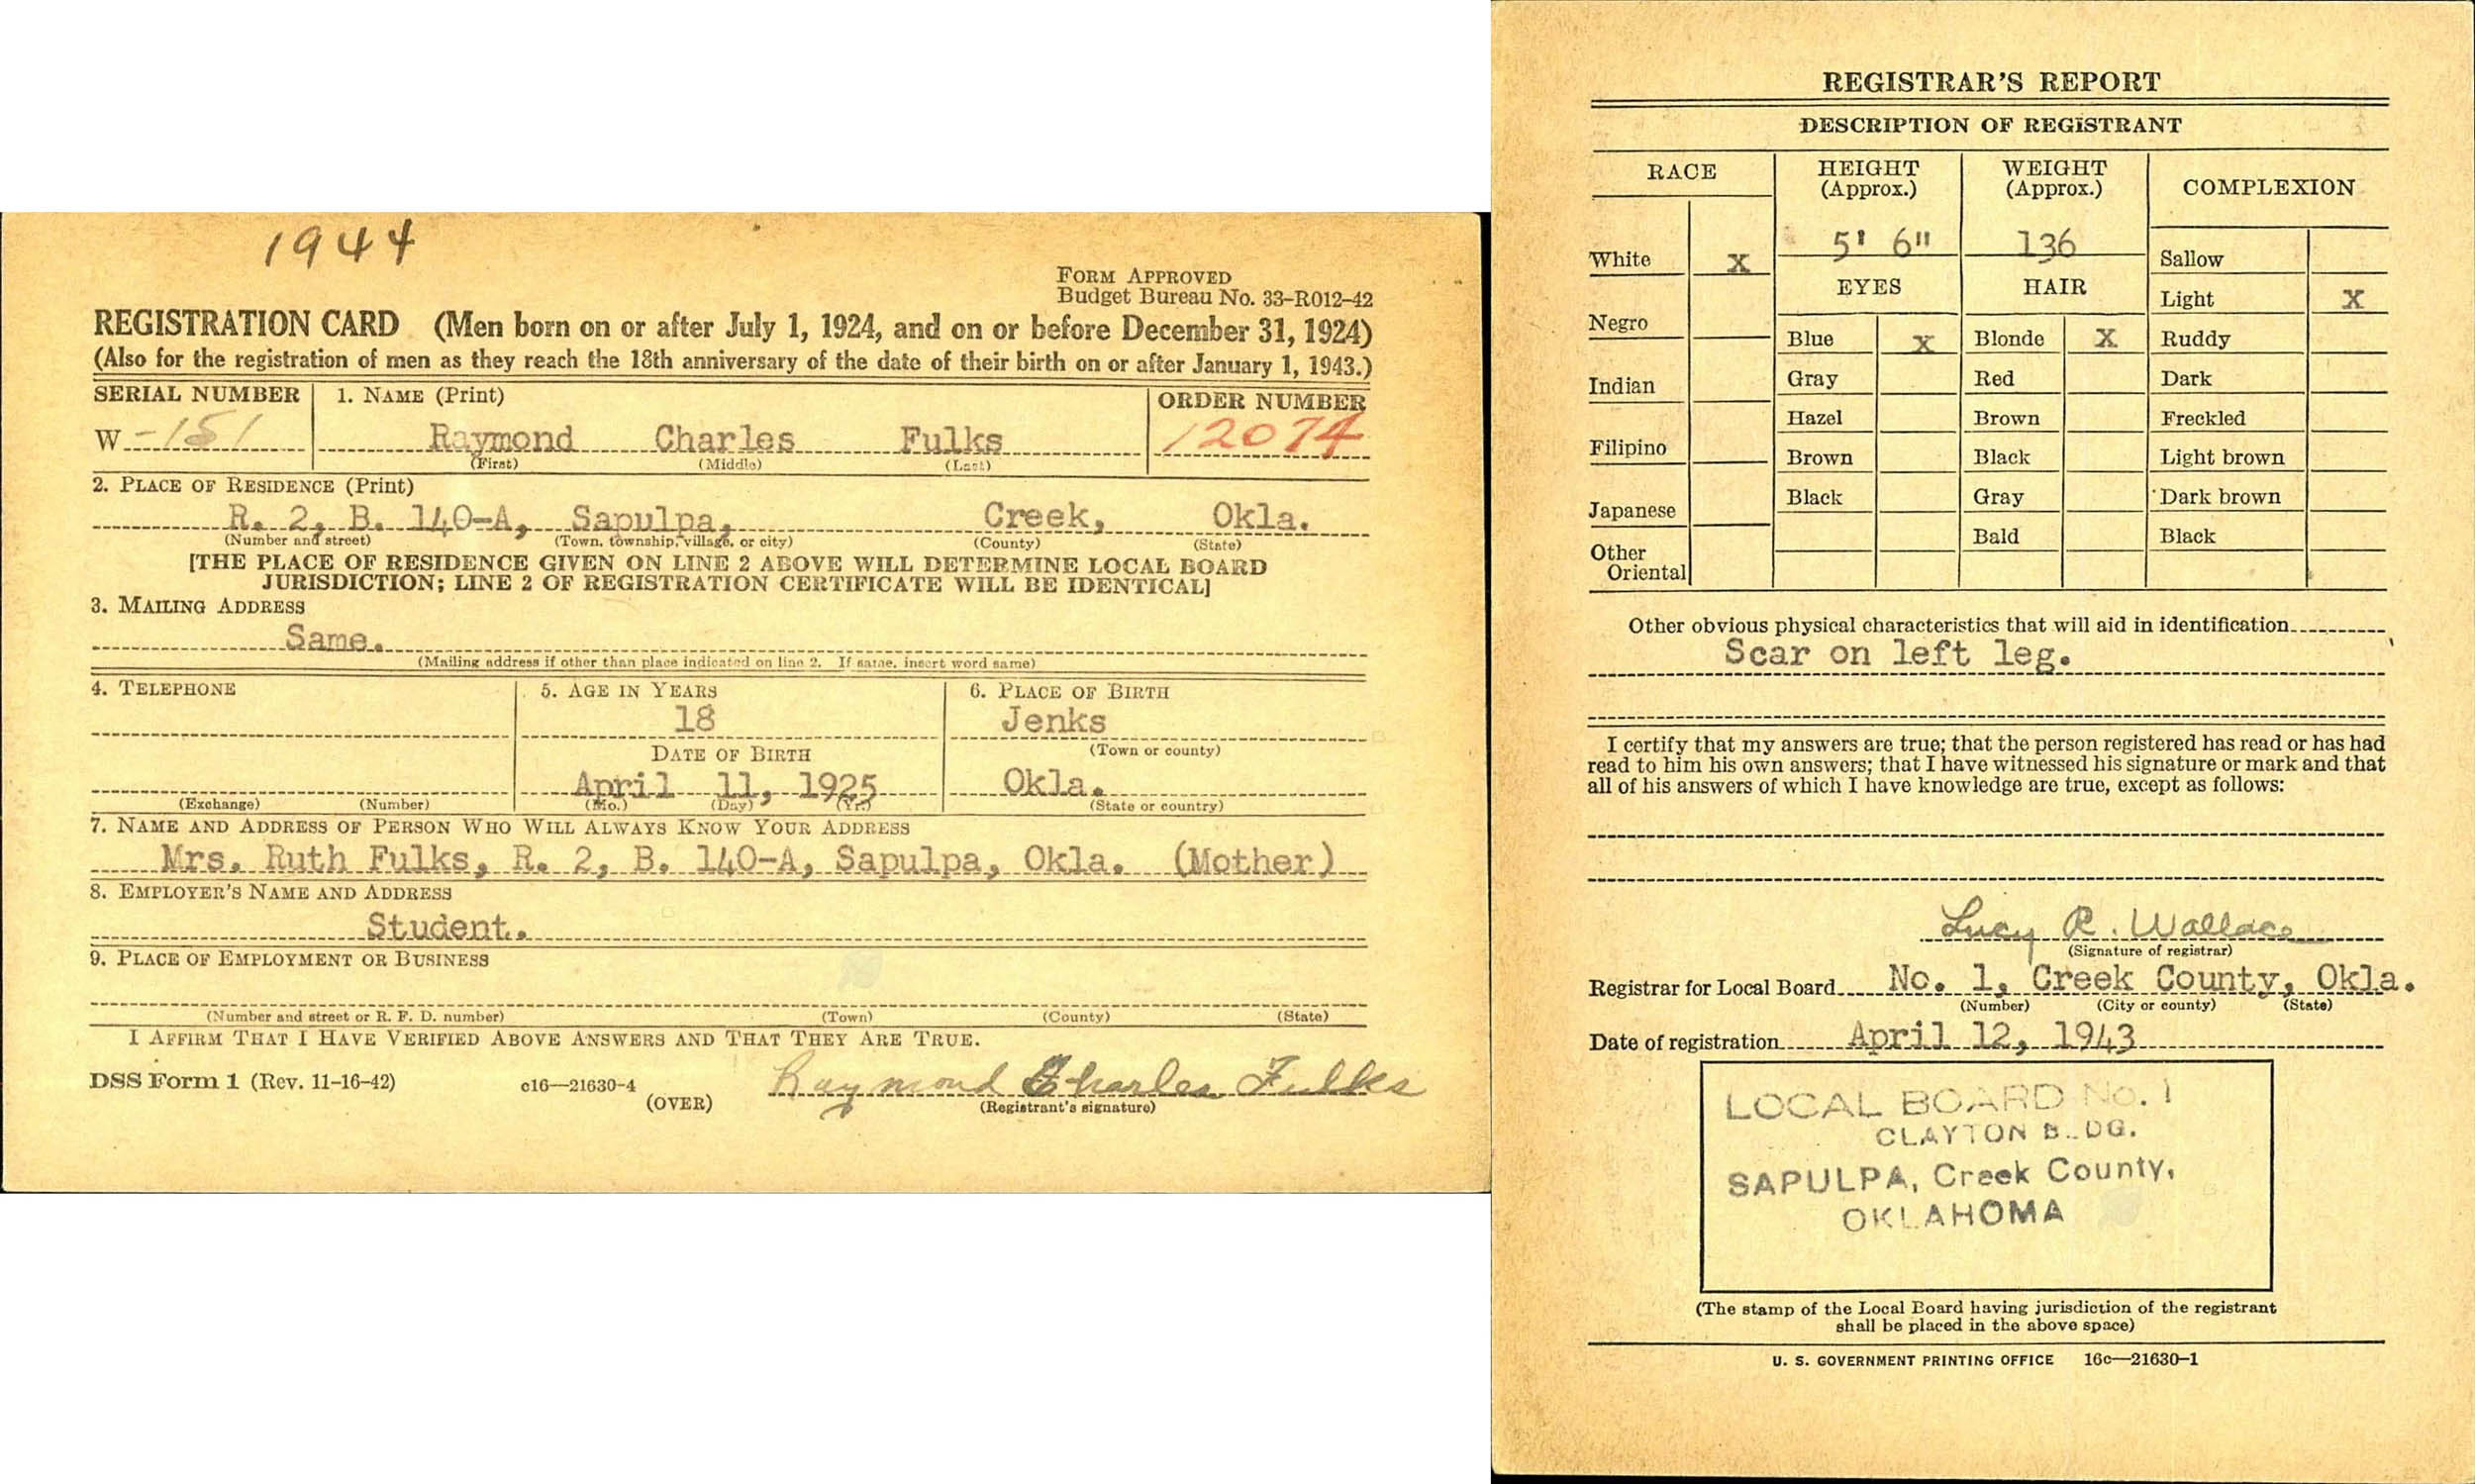 1944
FORM APPROVED
Budget Bureau No. 33-R012-42
REGISTRATION CARD (Men born on or after July 1, 1924, and on or before December 31, 1924)
(Also for the registration of men as they reach the 18th anniversary of the date of their birth on or after January 1, 1943.)
SERIAL NUMBER 1. NAME (Print) ORDER NUMBER
W -151 Raymond Charles Fulks 12074
(First) (Middle) (Last)
2. PLACE OF RESIDENCE (Print)
R. 2, B. 140-A, Sapulpa, Creek, Okla.
(Number and street) (Town, township, village, or city) (County) (State)
[THE PLACE OF RESIDENCE GIVEN ON LINE 2 ABOVE WILL DETERMINE LOCAL BOARD
JURISDICTION; LINE 2 OF REGISTRATION CERTIFICATE WILL BE IDENTICAL]
3. MAILING ADDRESS
Same.
(Mailing address if other than place indicated on line 2. If same, insert word same)
4. TELEPHONE 5. AGE IN YEARS 6. PLACE OF BIRTH
18 Jenks
DATE OF BIRTH (Town or county)
April 11, 1925 Okla.
(Exchange) (Number) (Mo.) (Day) (Yr.) (State or country)
7. NAME AND ADDRESS OF PERSON WHO WILL ALWAYS KNOW YOUR ADDRESS
Mrs. Ruth Fulks, R. 2, B. 140-A, Sapulpa, Okla. (Mother)
8. EMPLOYER'S NAME AND ADDRESS
Student.
9. PLACE OF EMPLOYMENT OR BUSINESS
(Number and street or R. F. D. number) (Town) (County) (State)
I AFFIRM THAT I HAVE VERIFIED ABOVE ANSWERS AND THAT THEY ARE TRUE.
DSS Form 1 (Rev. 11-16-42) c16—21630-4 Raymond Charles Fulks
(OVER) (Registrant's signature)
REGISTRAR'S REPORT
DESCRIPTION OF REGISTRANT
RACE HEIGHT (Approx.) WEIGHT (Approx.) COMPLEXION
White x 5' 6" 136 Sallow
EYES HAIR Light x
Negro Blue x Blonde x Ruddy
Indian Gray Red Dark
Hazel Brown Freckled
Filipino Brown Black Light brown
Japanese Black Gray Dark brown
Other Oriental Bald Black
Other obvious physical characteristics that will aid in identification
Scar on left leg.
I certify that my answers are true; that the person registered has read or has had
read to him his own answers; that I have witnessed his signature or mark and that
all of his answers of which I have knowledge are true, except as follows:
Lucy R. Wallace
(Signature of registrar)
Registrar for Local Board No. 1, Creek County, Okla.
(Number) (City or county) (State)
Date of registration April 12, 1943
LOCAL BOARD No. 1
CLAYTON BLDG.
SAPULPA, Creek County,
OKLAHOMA
(The stamp of the Local Board having jurisdiction of the registrant
shall be placed in the above space)
U. S. GOVERNMENT PRINTING OFFICE 16c—21630-1